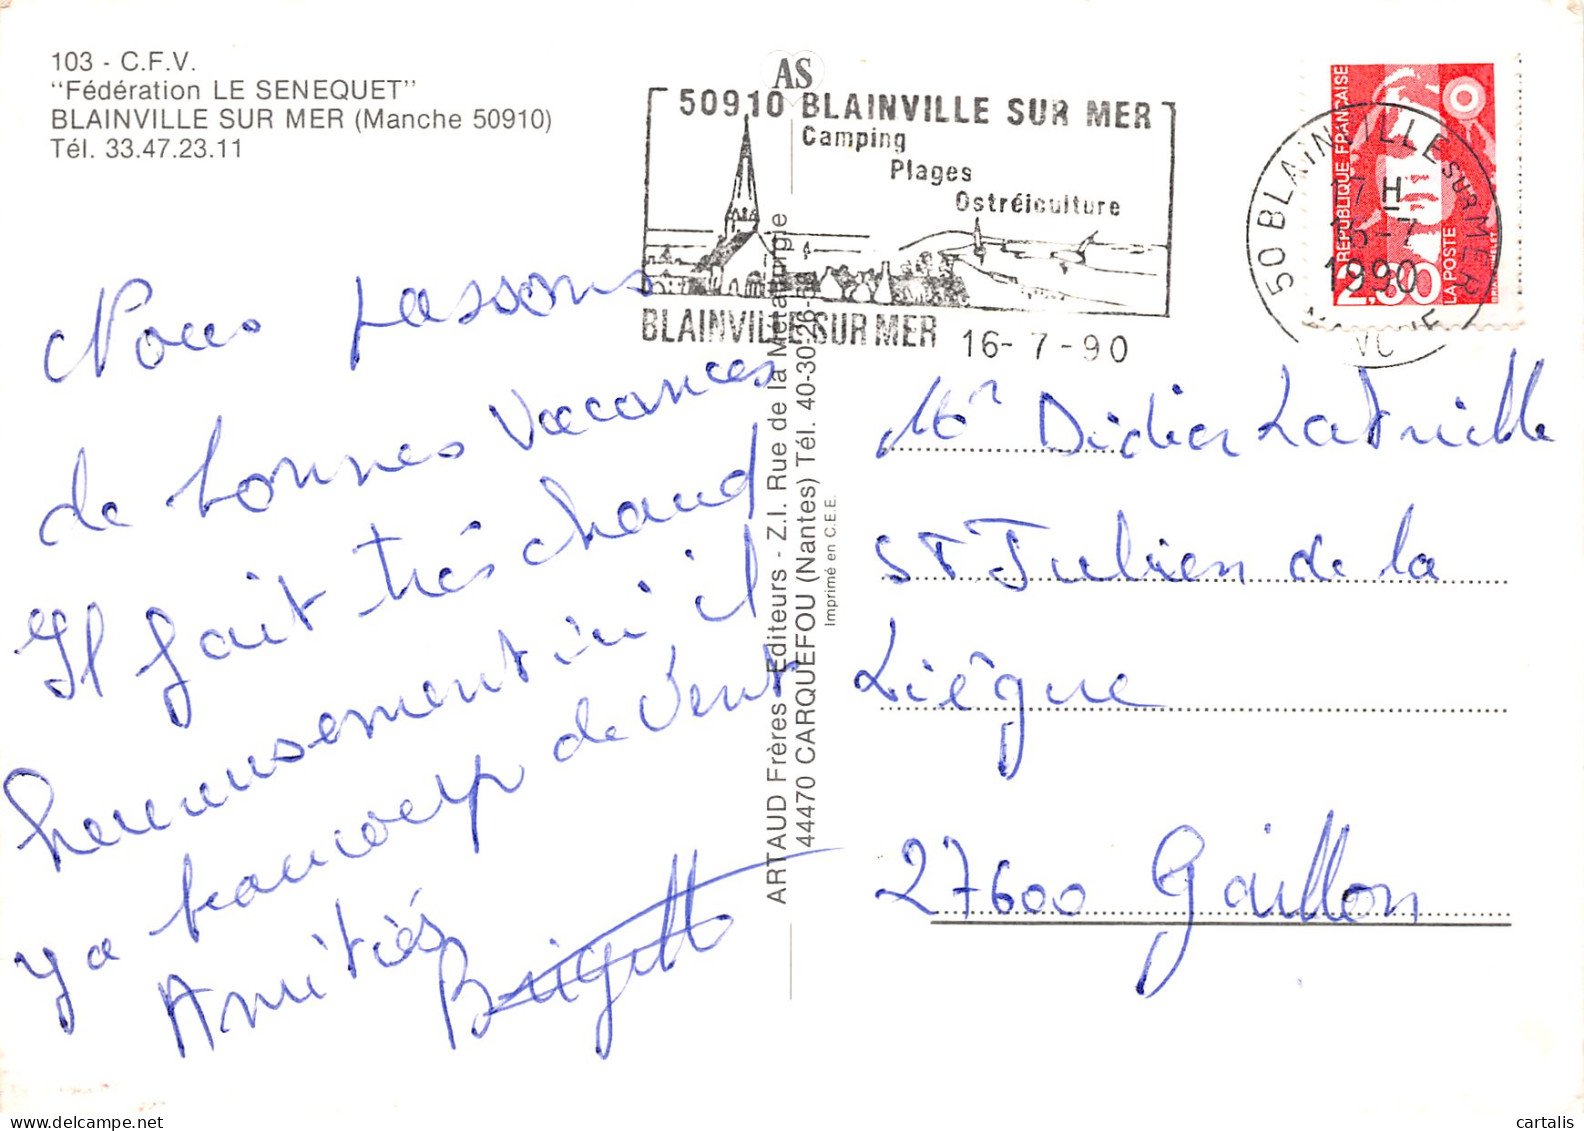 103 - C.F.V.
"Fédération LE SENEQUET"
BLAINVILLE SUR MER (Manche 50910)
Tél. 33.47.23.11
AS
50910 BLAINVILLE SUR MER
Camping
Plages
Ostréiculture
BLAINVILLE SUR MER 16-7-90
REPUBLIQUE FRANÇAISE
2,30
LA POSTE
50 BLAINVILLE SUR MER
17 H
16-7
1990
MANCHE
Nous passons
de bonnes vacances
Il fait très chaud
heureusement ici il
y a beaucoup de vent
Amitiés
Brigitte
ARTAUD Frères Editeurs - Z.I. Rue de la Métallurgie
44470 CARQUEFOU (Nantes) Tél. 40-30-26-50
Imprimé en C.E.E.
Mr Didier Latrille
St Julien de la
Liègue
27600 Gaillon
cartalis